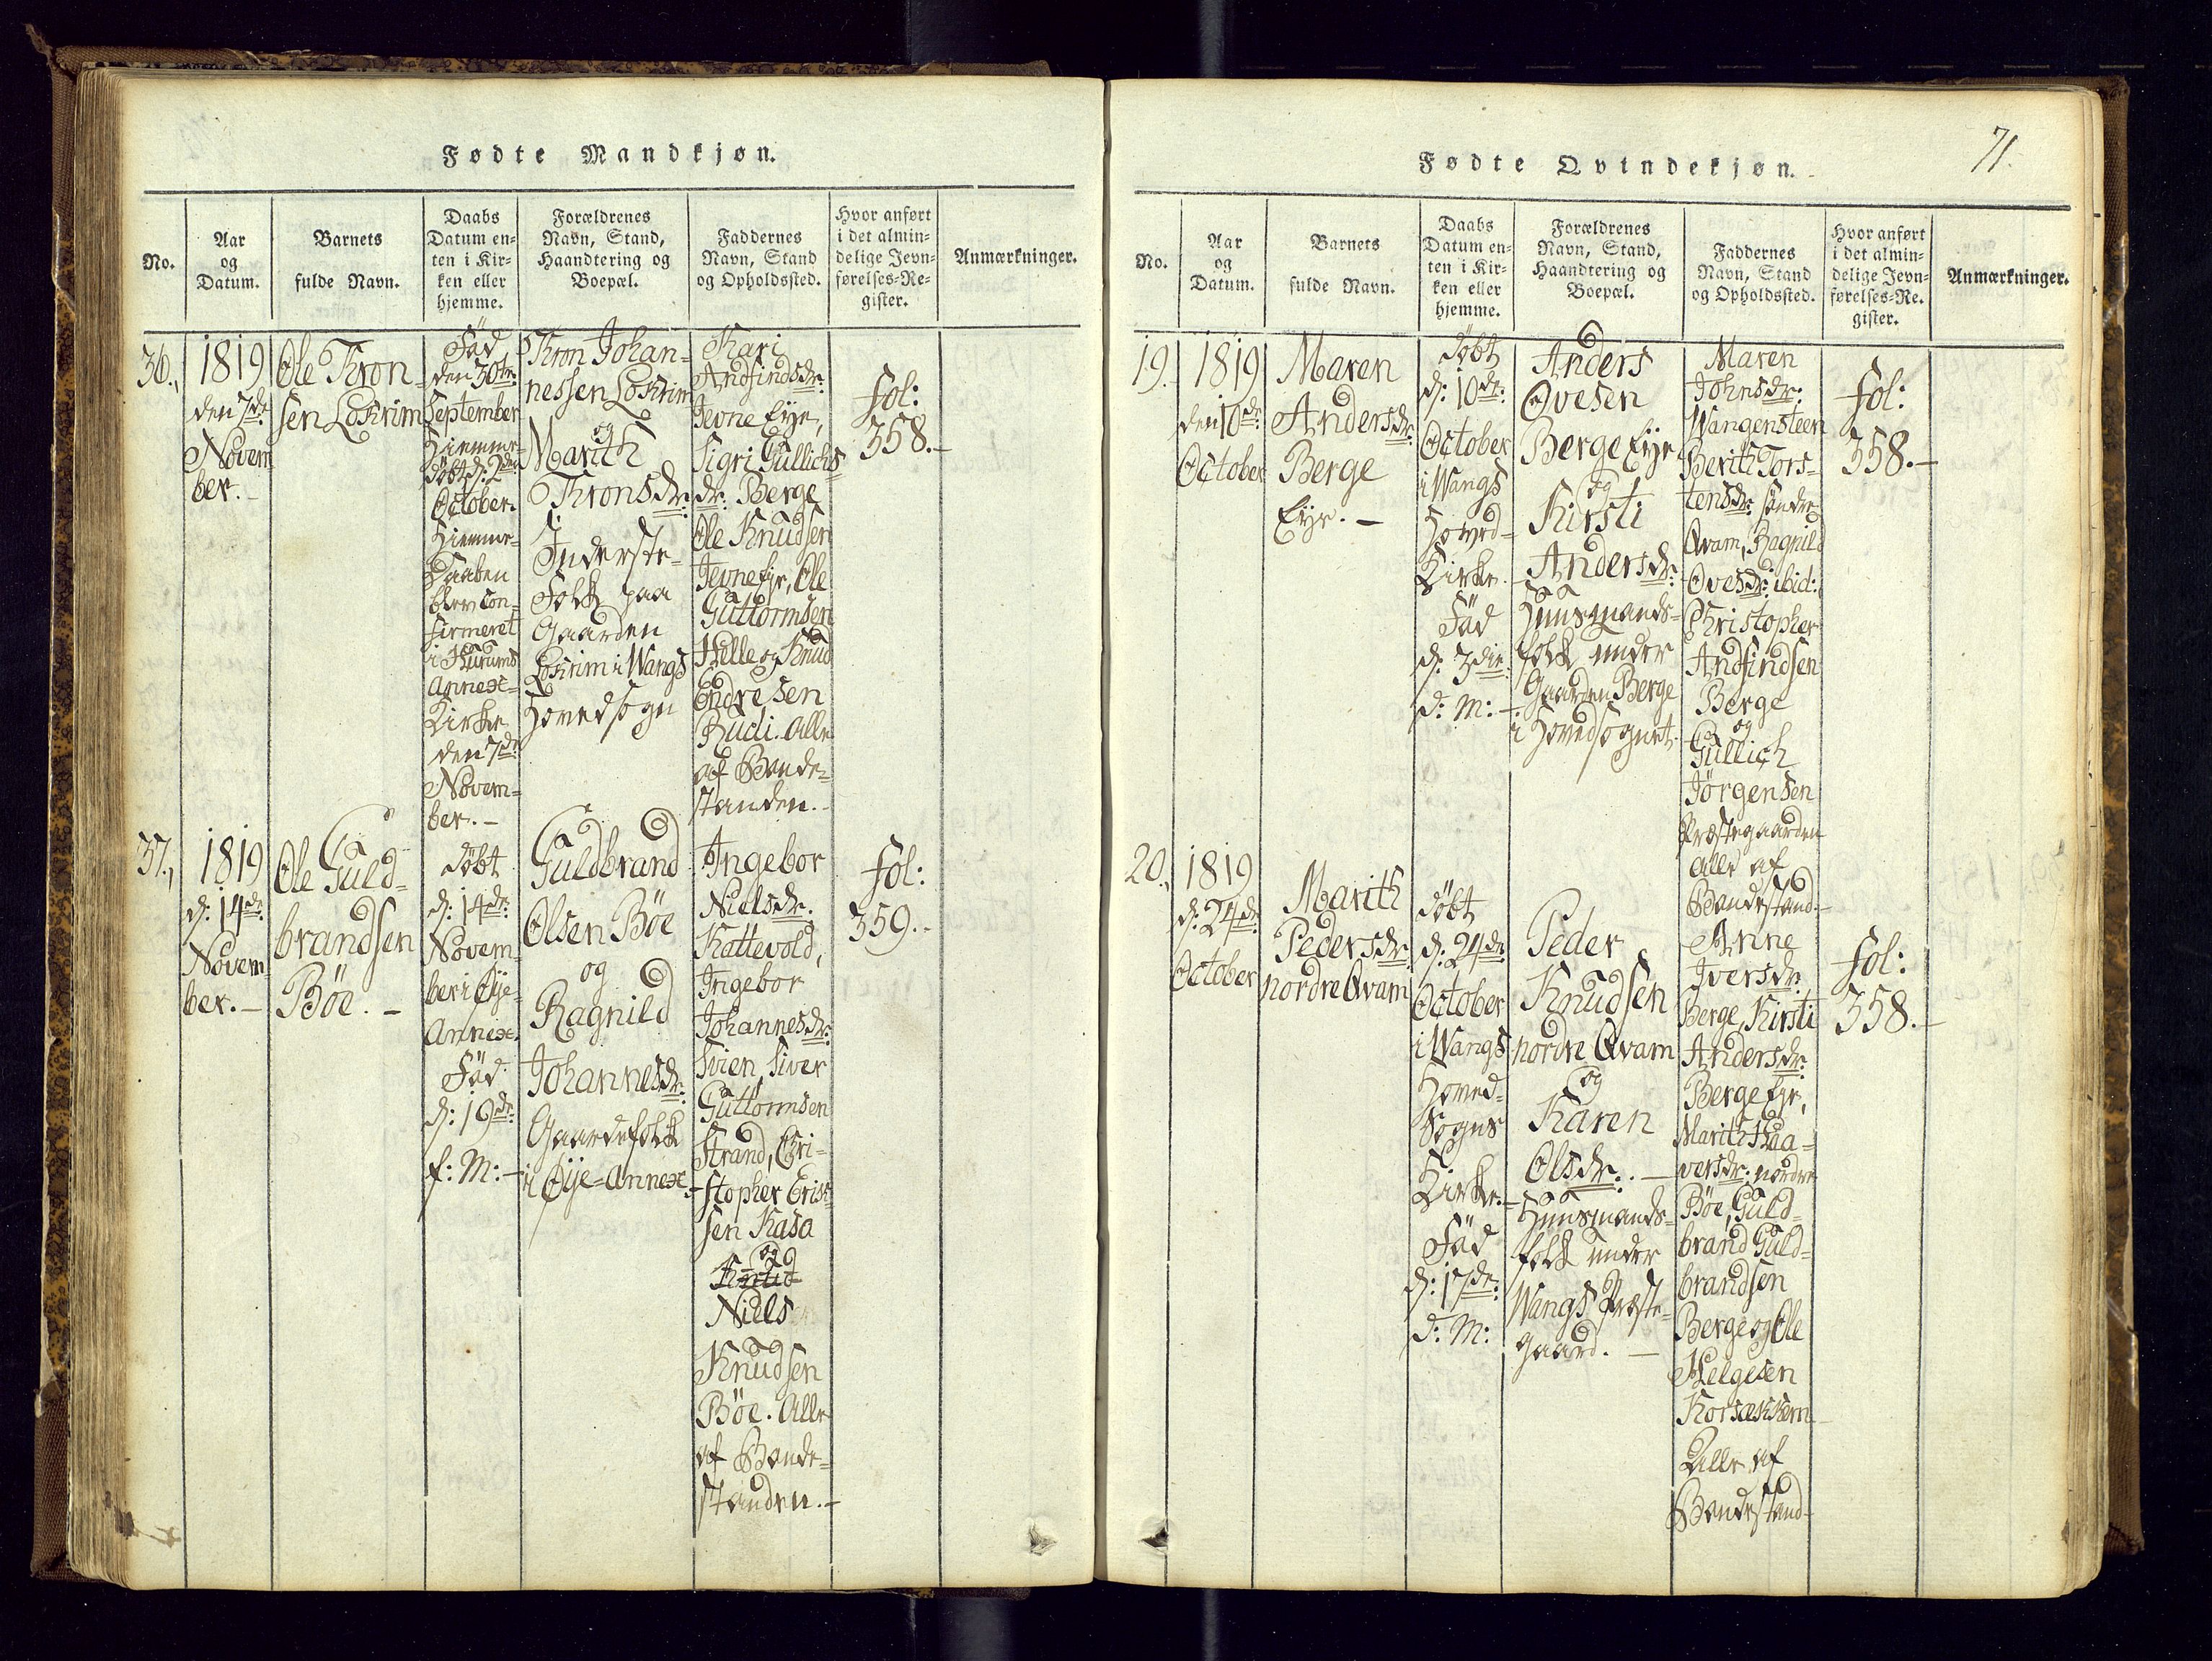 Fødte Mandkjøn.
No.
Aar
og
Datum.
Barnets
fulde Navn.
Daabs
Datum en-
ten i Kir-
ken eller
hjemme.
Forældrenes
Navn, Stand,
Haandtering og
Boepæl.
Faddernes
Navn, Stand
og Opholdssted.
Hvor anført
i det almin-
delige Jevn-
førelses-Re-
gister.
Anmærkninger.
36.
1819
den 7de
Novem
ber.-
Ole Thron-
sen Lohrim
Fød
den 30te
September
Hiemme-
døbt d: 2den
October.
Hiemme-
Daaben
blev con-
firmeret
i Hurums
Annex-
Kirke
den 7de
Novem-
ber.-
Thron Johan-
nessen Lohrim
og
Marith
Thronsdr.
Inderste-
Folk paa
Gaarden
Lohrim i Wangs
Hovedsogn
Kari
Andfindsdr.
Jevne Eye,
Sigri Gullichs
dr. Berge
Ole Knudsen
Jevne Eje, Ole
Guttormsen
Helle og Knud
Endresen
Rudi. Alle
af Bonde-
standen.-
fol:
358.-
37.
1819
d: 14de
Novem-
ber.-
Ole Guld-
brandsen
Böe.-
döbt
d: 14de
Novem-
ber i Øye-
Annex.
Fød
d: 19de
f: M:-
Guldbrand
Olsen Böe
og
Ragnild
Johannesdr.
Gaardefolk
i Øye-Annex.-
Ingebor
Nielsdr.
Kattevold,
Ingebor
Johannesdr.
Svien Siver
Guttormsen
Strand, Chri-
stopher Erich-
sen Kasa
og
Knud
Niels
Knudsen
Böe. Alle
af Bonde-
standen.-
fol:
359.-
71.
Fødte Qvindekjøn.
No.
Aar
og
Datum.
Barnets
fulde Navn.
Daabs
Datum en-
ten i Kir-
ken eller
hjemme.
Forældrenes
Navn, Stand,
Haandtering og
Boepæl.
Faddernes
Navn, Stand
og Opholdssted.
Hvor anført
i det almin-
delige Jevn-
førelses-Re-
gister.
Anmærkninger.
19.
1819
den 10de
October
Maren
Andersdr.
Berge
Eye.-
döbt
d: 10de
October
i Wangs
Hoved-
Kirke.
Fød
d: 3die
d: M:-
Anders
Ovesen
Berge Eye
og
Kirsti
Andersdr.
Huusmands-
folk under
Gaarden Berge
i Hovedsognet.
Maren
Johnsdr.
Wangensteen
Berith Tors-
tensdr. söndre
Qvam, Ragnild
Ovesdr. ibid:
Christopher
Andfindsen
Berge
og
Gullich
Jörgensen
Præstegaarden
Alle af
Bondestand.-
fol:
358.-
20.
1819
d: 24de
October
Marith
Pedersdr.
nordre Qvam
döbt
d: 24de
October
i Wangs
Hoved-
Sogns
Kirke.-
Fød
d: 17de
d: M:
Peder
Knudsen
nordre Qvam
og
Karen
Olsdr.-
Huusmands-
folk under
Wangs Præste-
gaard.-
Anne
Iversdr.
Berge, Kirsti
Andersdr.
Berge Eje,
Marith Haa-
versdr. nordre
Böe, Guld-
brand Guld-
brandsen
Berge og Ole
Helgesen
Alle af
Bondestand-
fol:
358.-